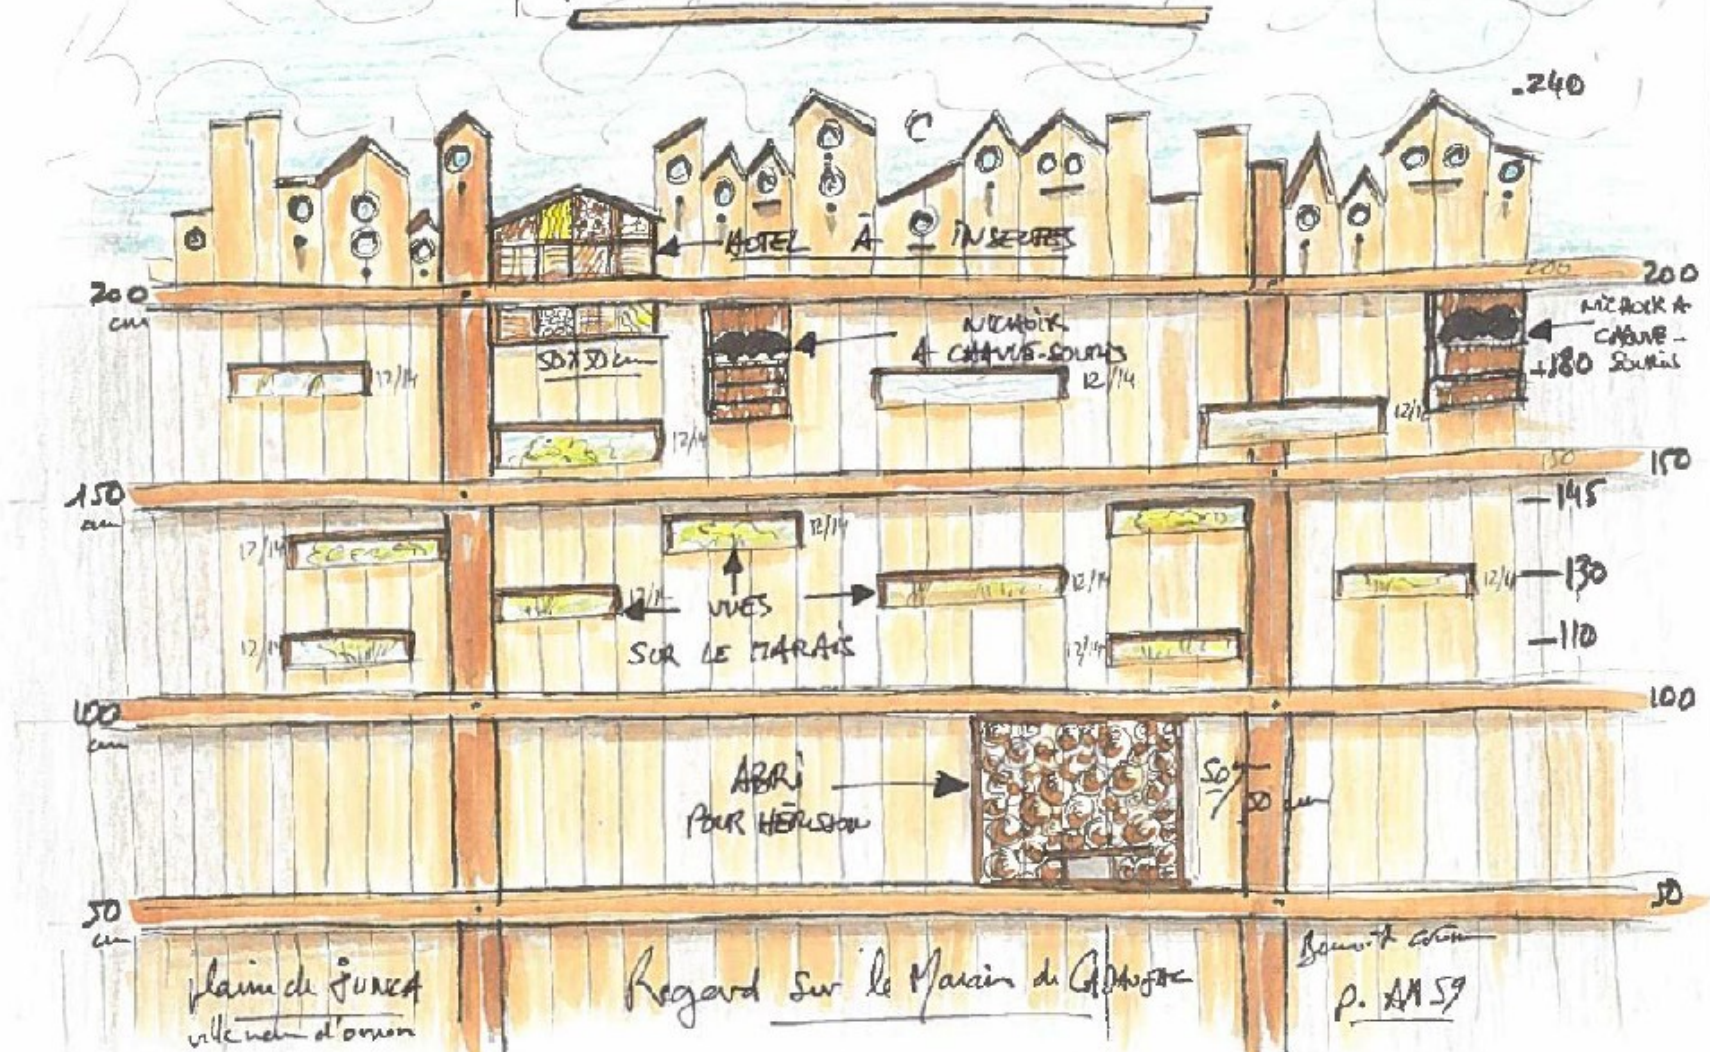 .240
C
HOTEL À INSECTES
200
200
200 cm
NICHOIR
A CHAUVE-SOURIS
NICHOIR A
CHAUVE-
SOURIS
50X50 cm
12/14
12/14
+180
12/14
12/14
150
150
150 cm
145
12/14
12/14
12/14
12/14
12/14
130
VUES
SUR LE MARAIS
12/14
12/14
110
100 cm
100
ABRI
POUR HÉRISSON
50/50 cm
50 cm
50
plaine de JUNCA
villenave d'ornon
Regard Sur le Marais de CADAUJAC
Benoit
P. AM 59